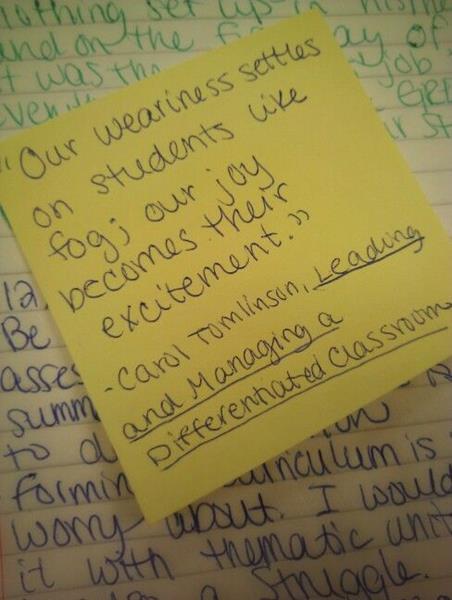 nothing set up in
and on the day of
it was the job
"Our weariness settles
on students like
fog; our joy
becomes their
excitement."
-Carol Tomlinson, Leading
and Managing a
Differentiated Classroom
12
Be
asses
summ
to d
formin curriculum is
worry about. I would
it with thematic unit
a struggle.